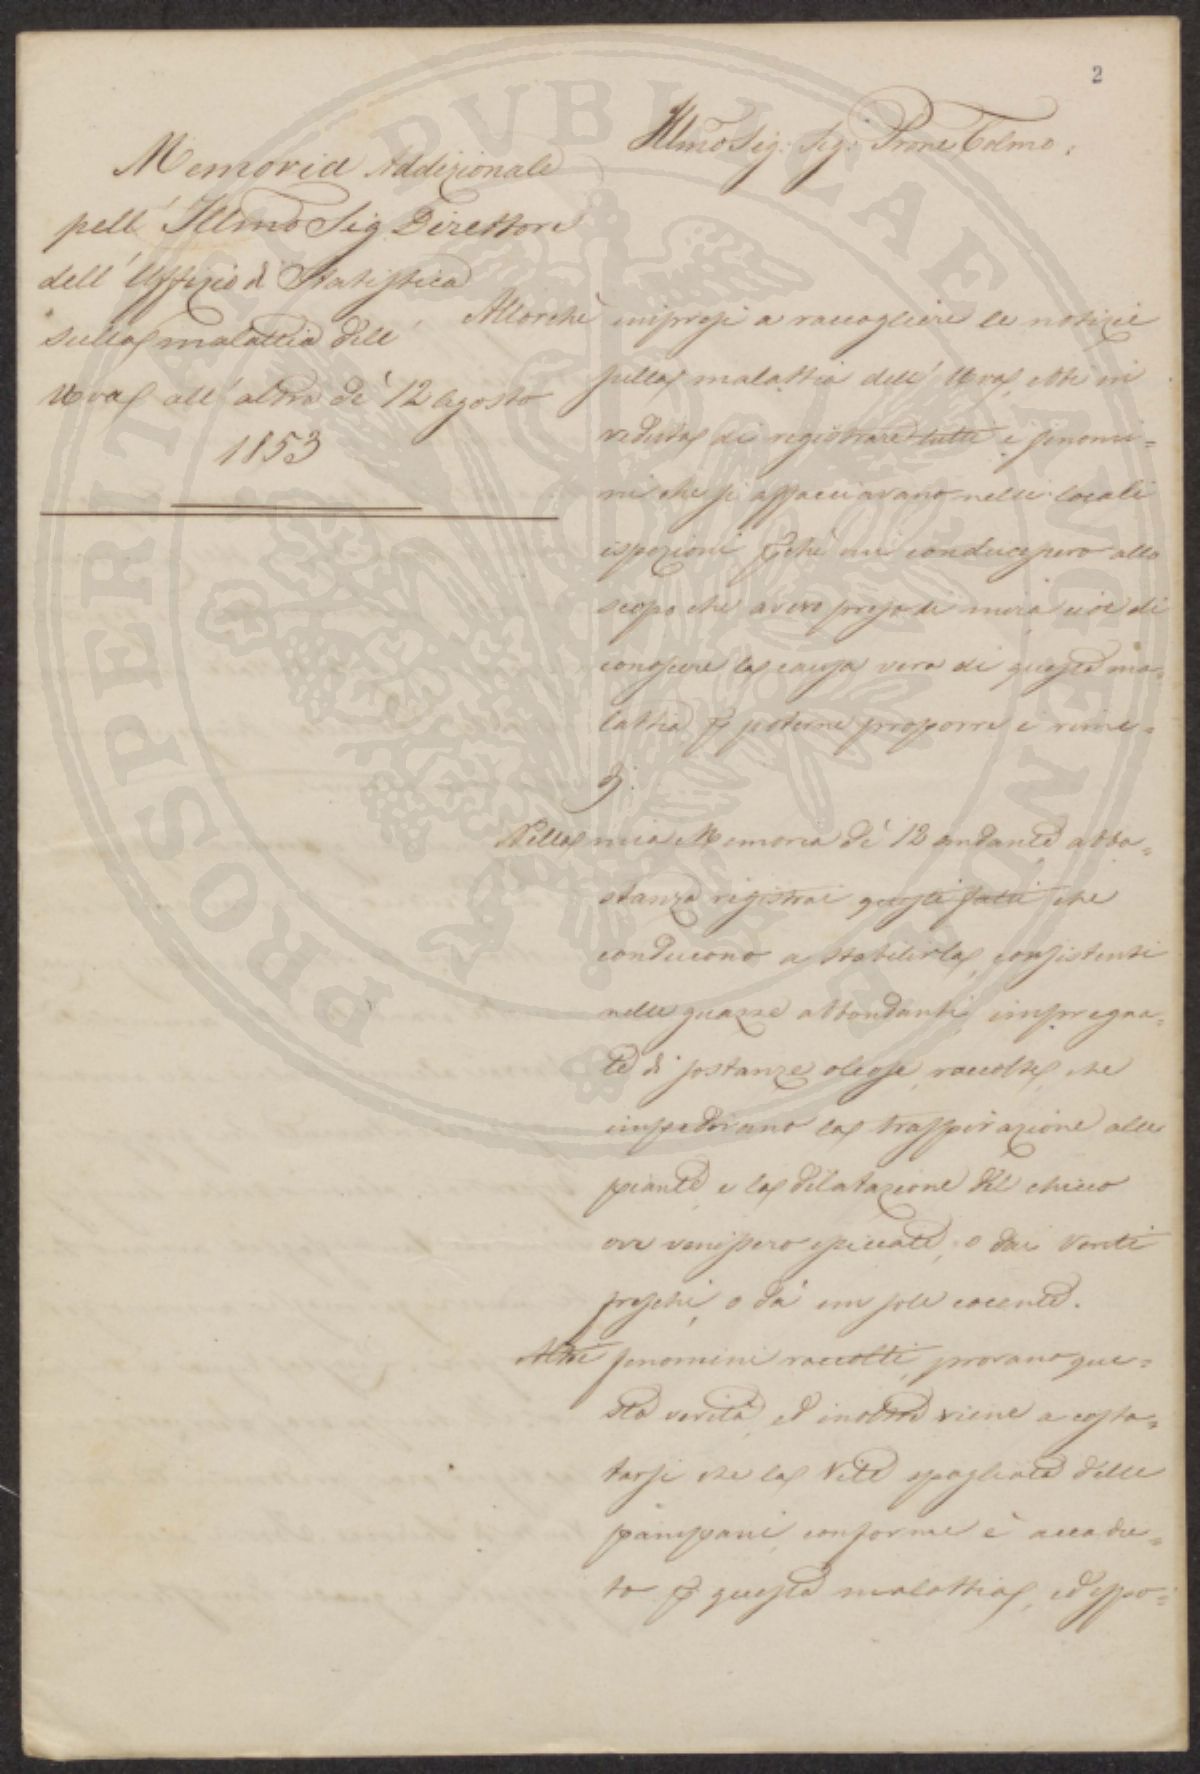 2
Illmo Sig: Sig: Prone Colmo.
Memoria Addizionale
pell' Illmo Sig Direttore
dell' Uffizio di Statistica
sulla malattia dell'
Uva all' altra de' 12 Agosto
1853
Allorchè impresi a raccogliere le notizie
sulla malattia dell' Uva, ebbi in
veduta di registrare tutti i fenomi=
ni che si affacciavano nelle locali
ispezioni pchè mi conducessero allo
scopo che avevo preso di mira cioè di
conoscere la causa vera di questa ma=
lattia p poterne proporre i rime=
dj.
Nella mia Memoria de' 12 andante abba=
stanza registrai questi fatti che
conducono a stabilirla, consistenti
nelle guazze abbondanti, impregna=
te di sostanze oleose, raccolte, che
impedivano la traspirazione alle
piante, e la dilatazione del chicco
ove venissero spiccate, o dai Venti
freschi, o da' un sole cocente.
Altri fenomini raccolti, provano que=
sta verità, ed inoltre viene a costa=
tarsi che la Vite spogliata delle
pampani, conforme è accadu=
to p questa malattia, ed espo=
PROSPERITATI PVBLICAE AVGENDAE